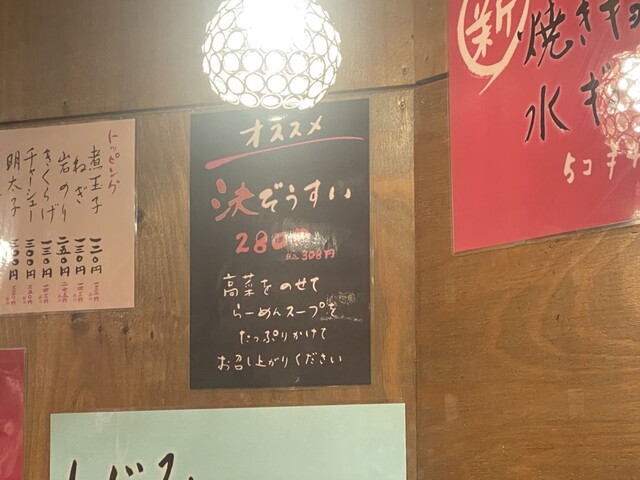 オススメ
決ぞうすい
280円
税込308円
高菜をのせて
らーめんスープを
たっぷりかけて
お召し上がりください
トッピング
煮玉子 一二〇円
ねぎ 一三〇円
岩のり 二五〇円
きくらげ 一三〇円
チャーシュー 三〇〇円
明太子 三〇〇円
新
焼きギョ
水ギ
5コ